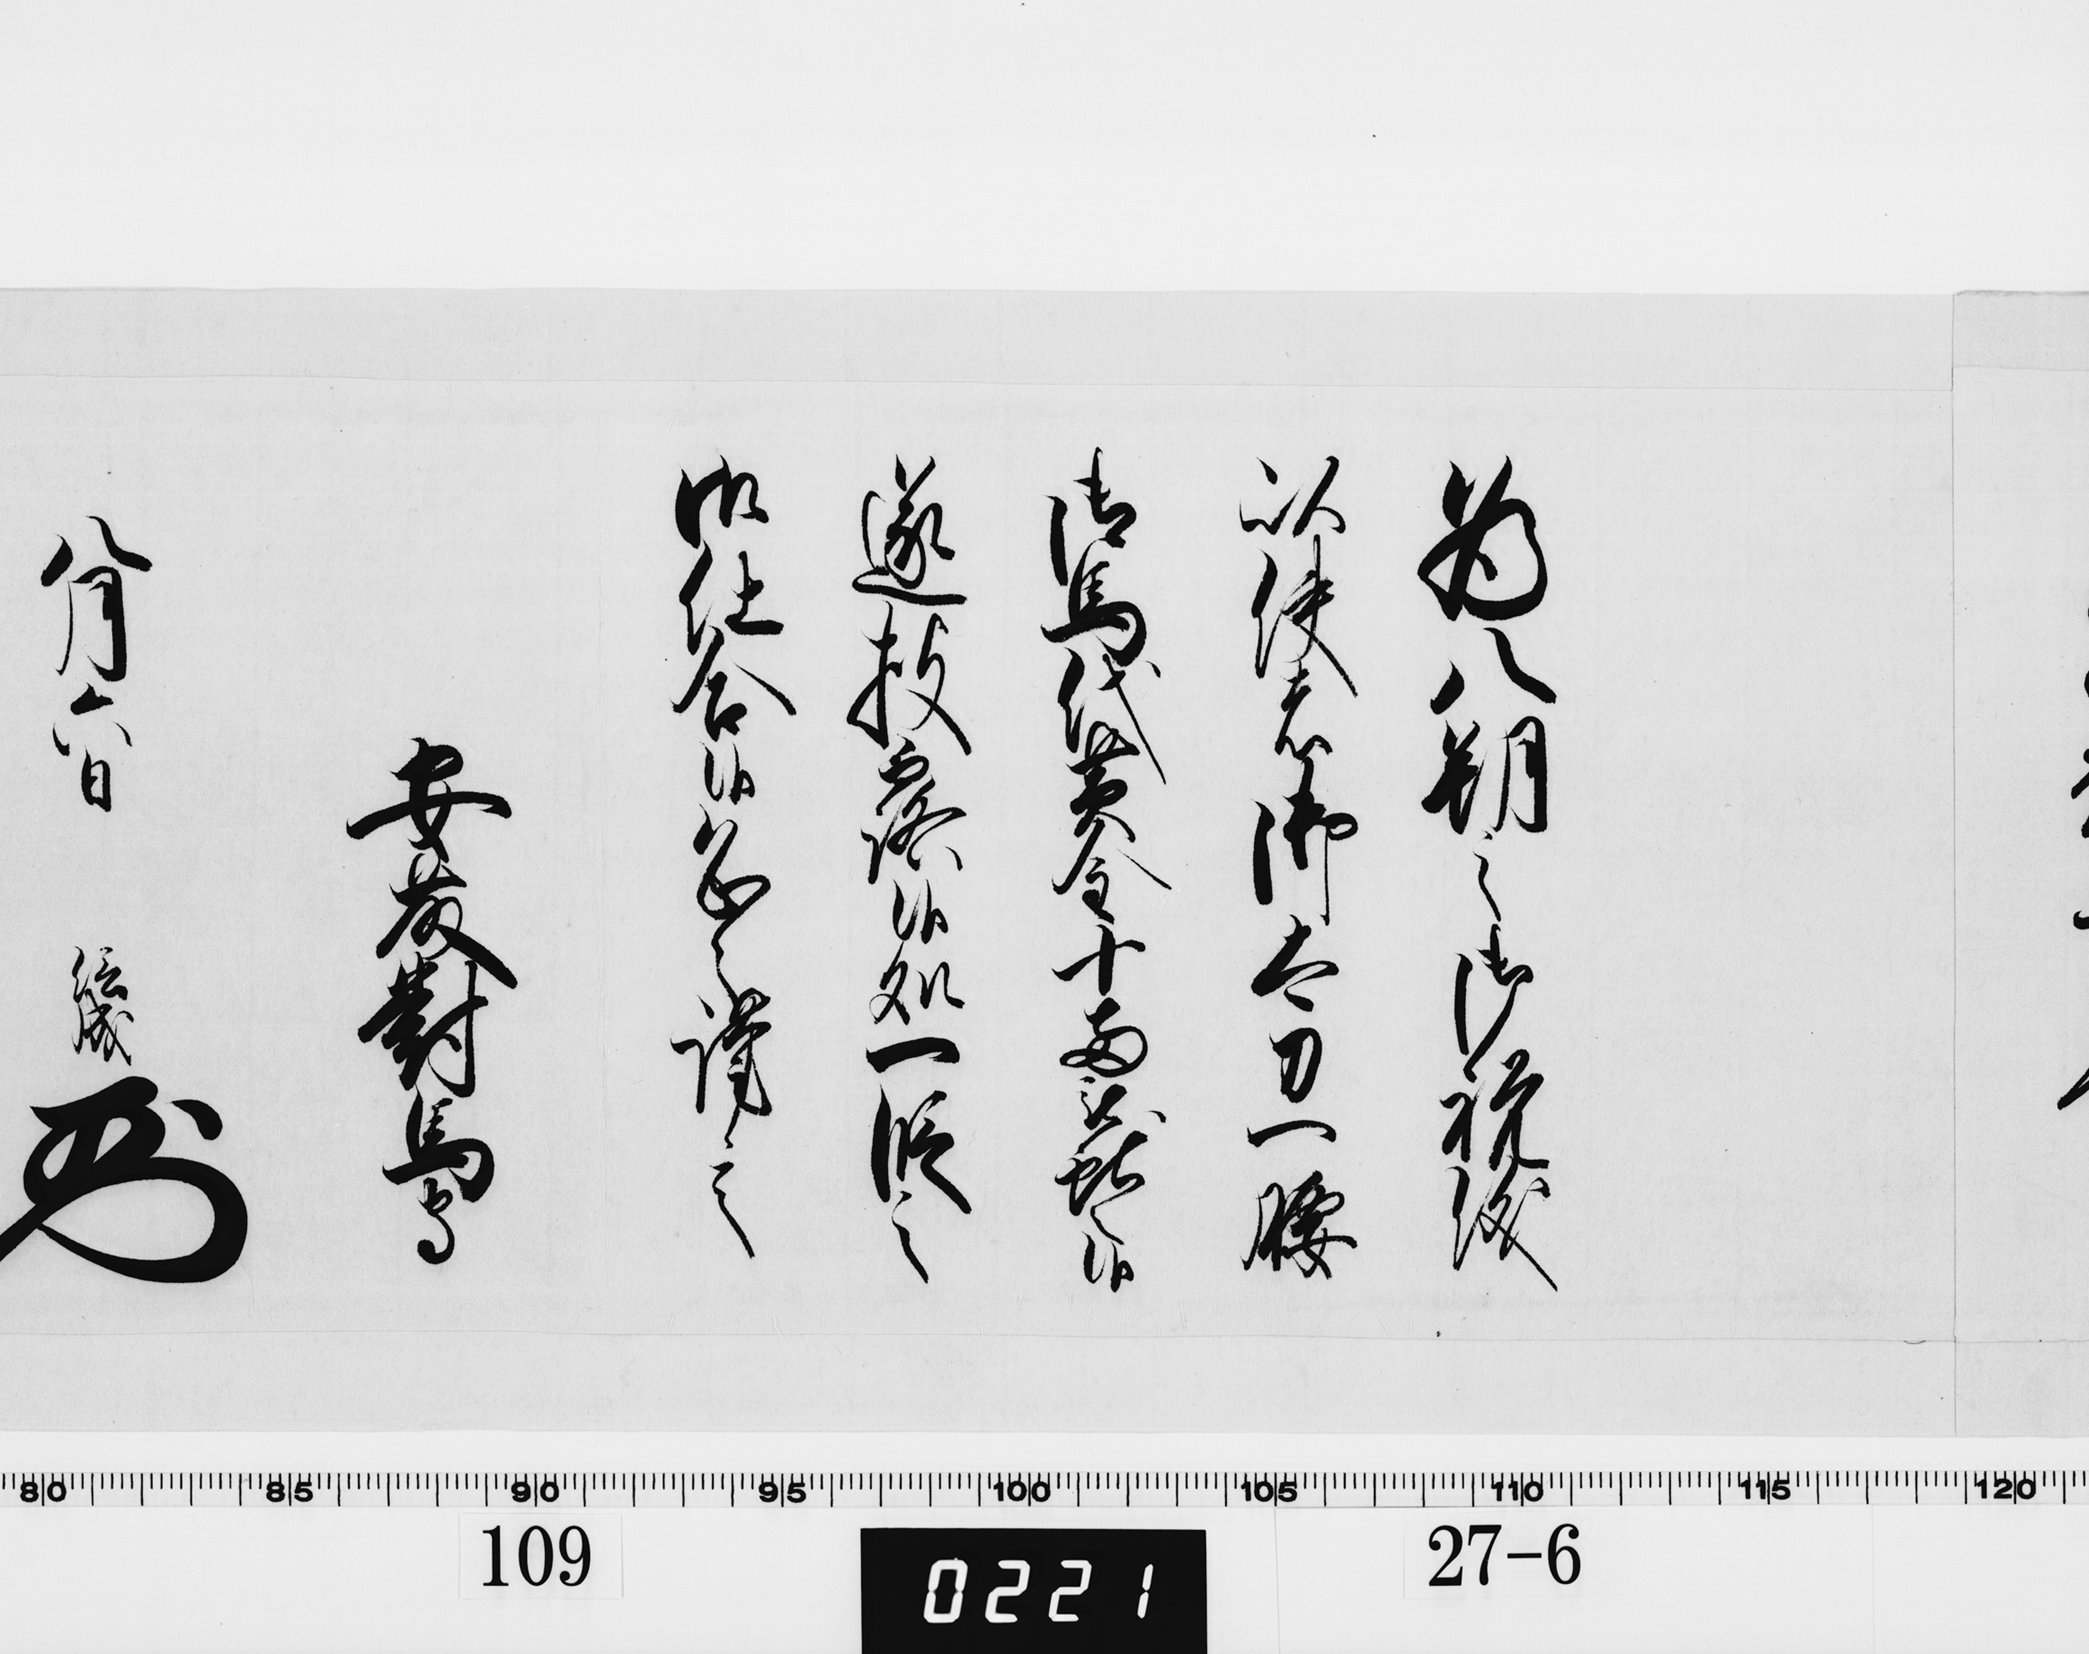 為八朔之御祝儀
以使者御太刀一腰
御馬代黄金十両被献候
遂披露候処一段之
御仕合候恐々謹言
安藤對馬守
八月六日
80 85 90 95 100 105 110 115 120
109
0221
27-6